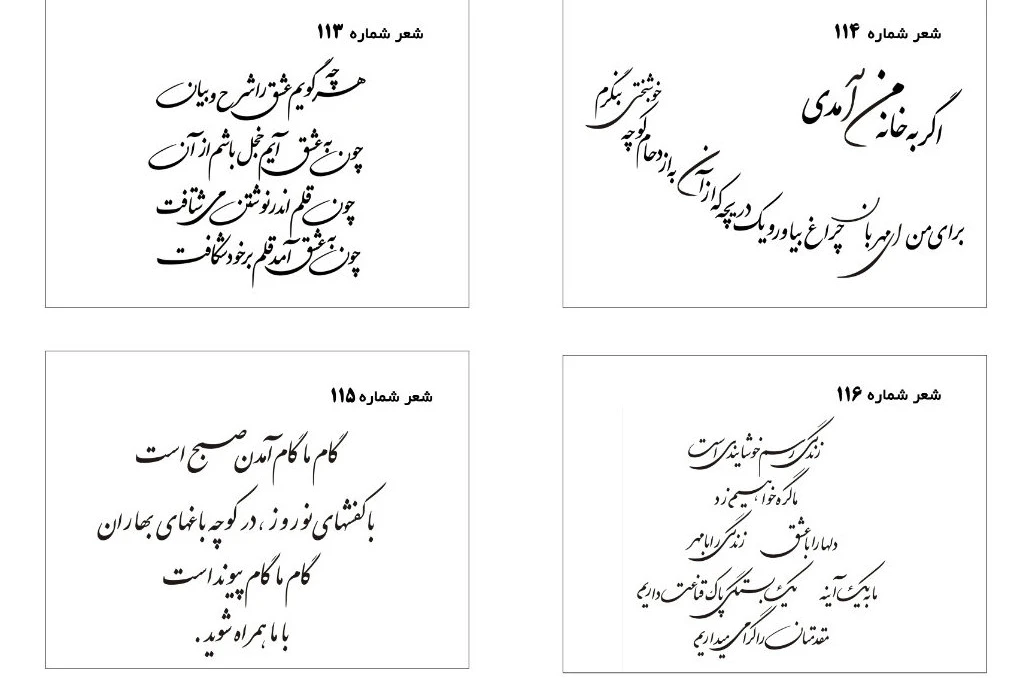 شعر شماره ۱۱۳
هر چه گویم عشق را شرح و بیان
چون به عشق آیم خجل باشم از آن
چون قلم اندر نوشتن می شتافت
چون به عشق آمد قلم بر خود شکافت
شعر شماره ۱۱۴
اگر به خانه من آمدی
برای من ای مهربان چراغ بیاور و یک دریچه که از آن
به ازدحام کوچه
خوشبختی بنگرم
شعر شماره ۱۱۵
گام ما گام آمدن صبح است
با کفشهای نوروز ، در کوچه باغهای بهاران
گام ما گام پیوند است
با ما همراه شوید .
شعر شماره ۱۱۶
زندگی رسم خوشایندی است
ما گره خواهیم زد
دلها را با عشق زندگی را با مهر
ما به یک آینه یک بستگی پاک قناعت داریم
مقدمتان را گرامی میداریم